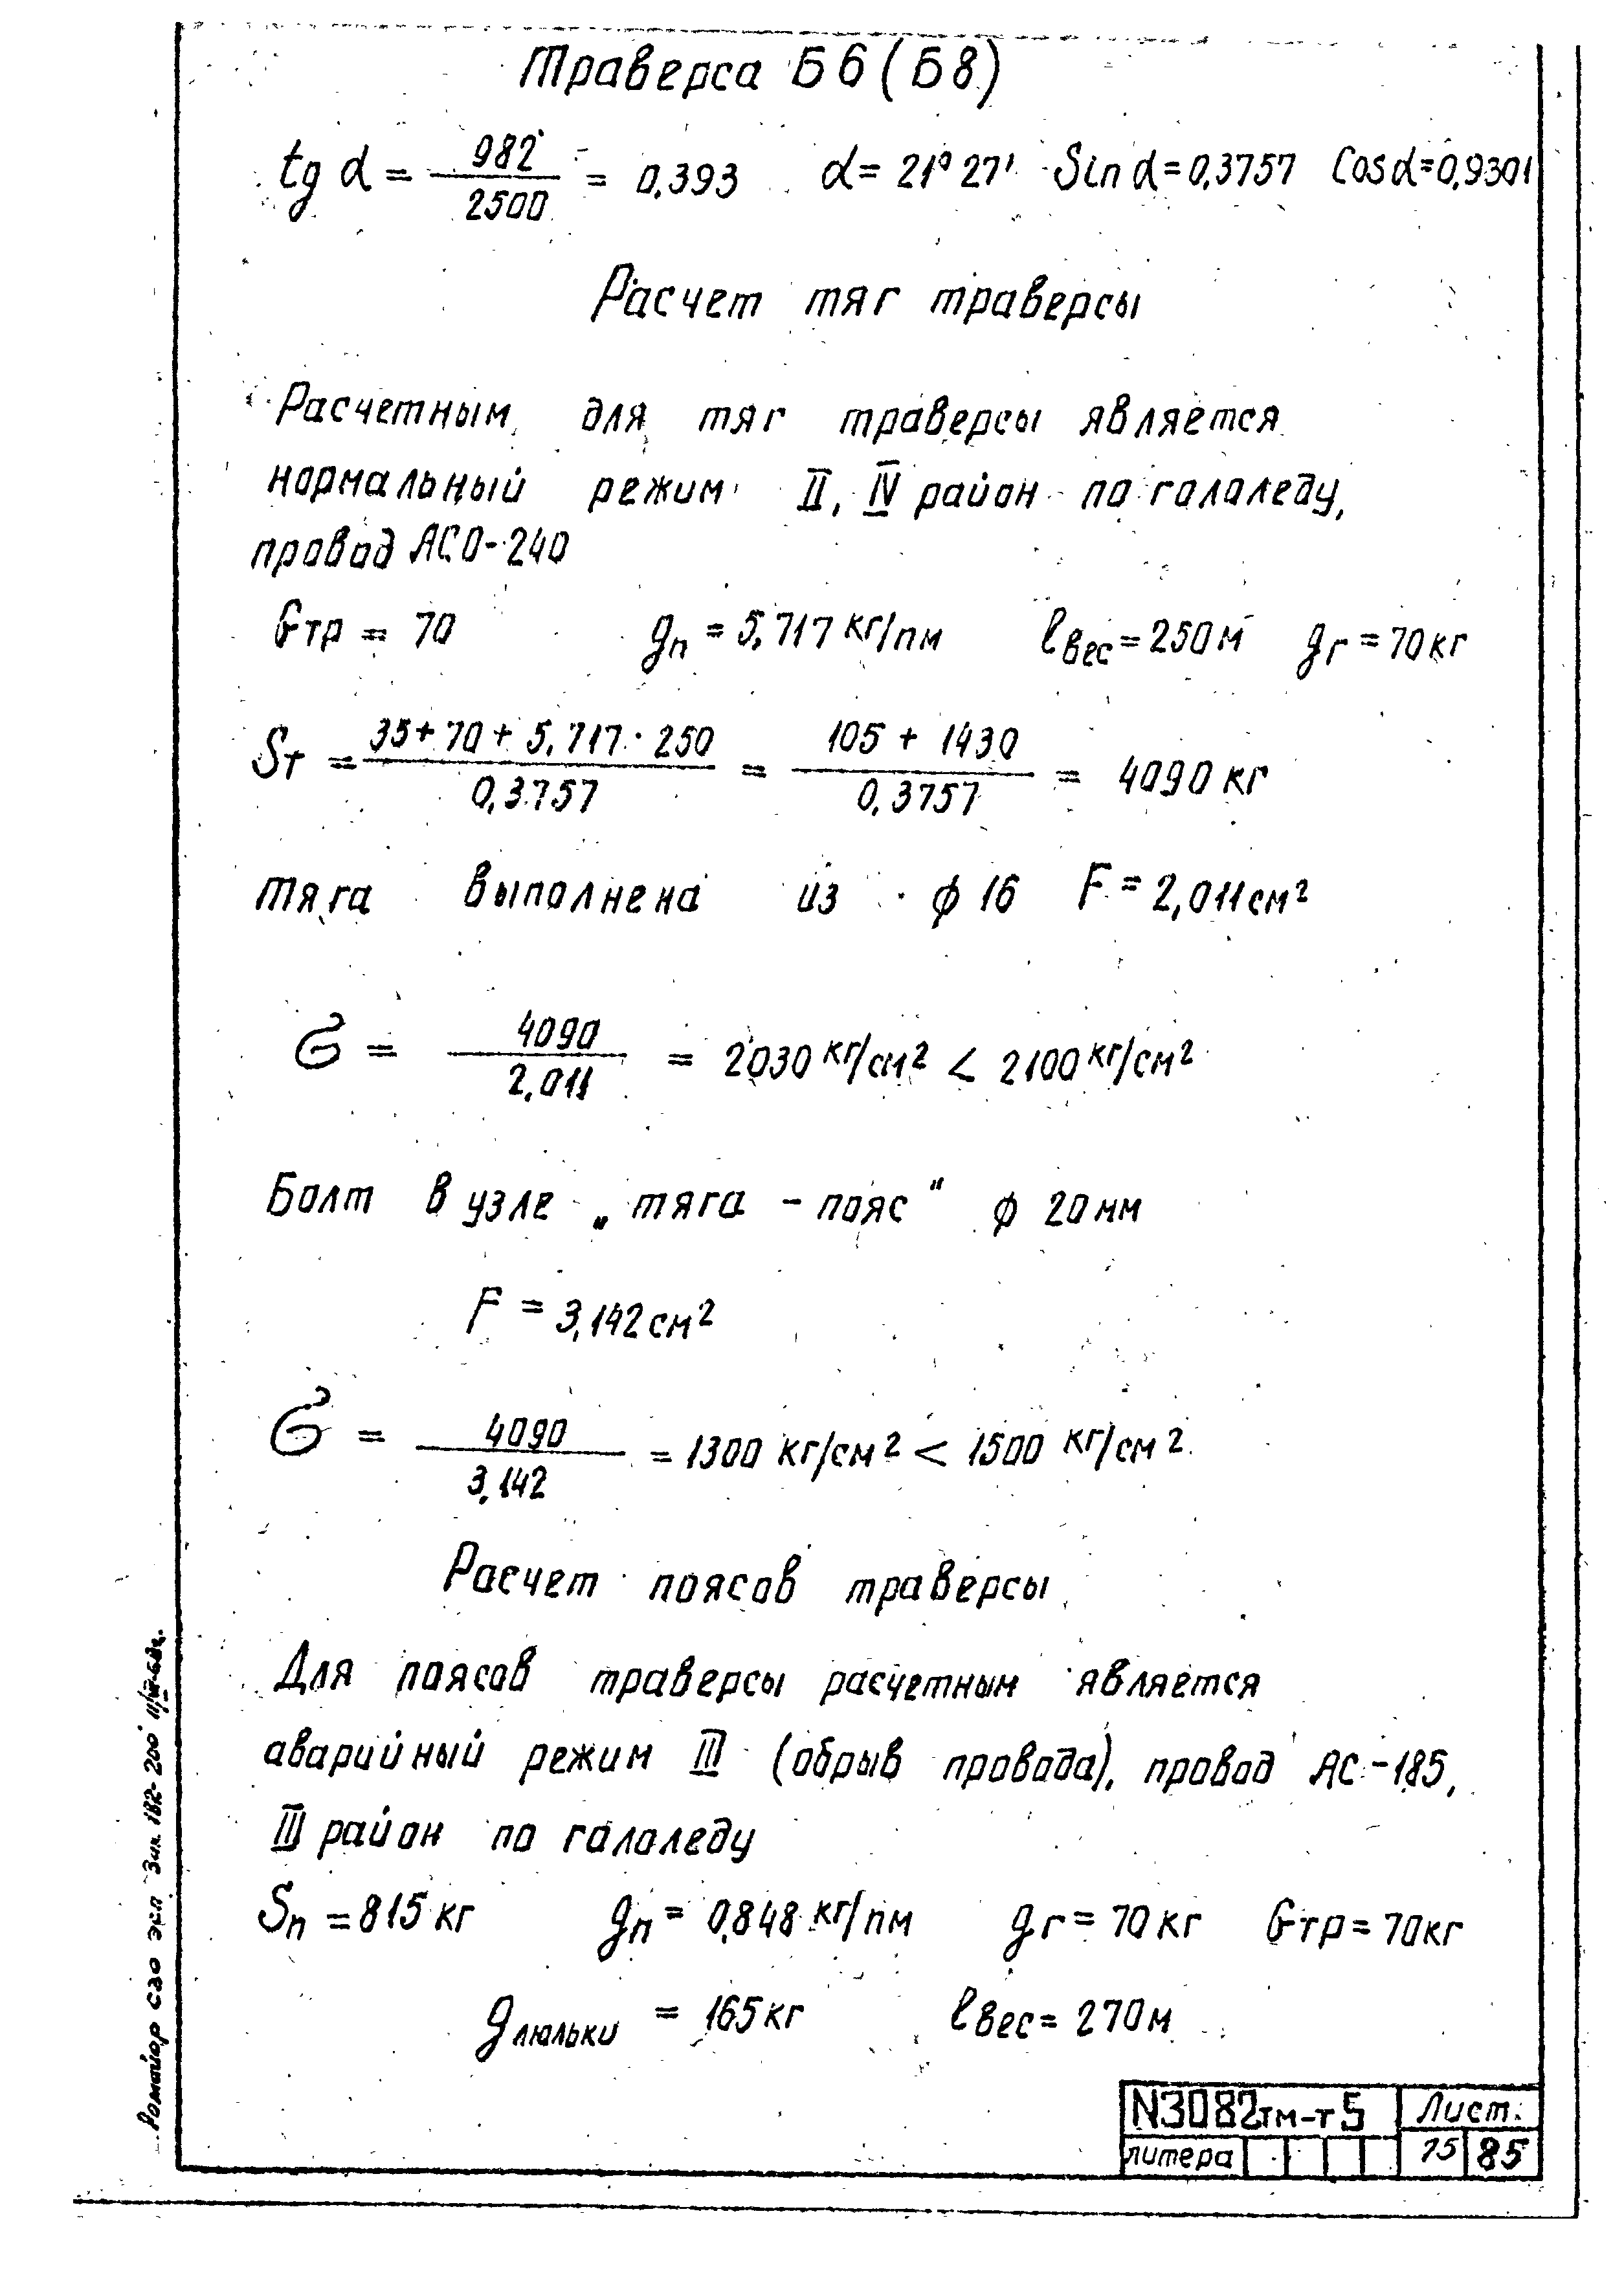 Траверса Б6 (Б8)
tg α = 982 / 2500 = 0,393 α = 21° 27' Sin α = 0,3757 Cos α = 0,9301
Расчет тяг траверсы
Расчетным для тяг траверсы является
нормальный режим II, IV район по гололеду,
провод АСО-240
Gтр = 70 gп = 5,717 кг/пм lвес = 250 м gг = 70 кг
Sт = 35 + 70 + 5,717 · 250 / 0,3757 = 105 + 1430 / 0,3757 = 4090 кг
тяга выполнена из ϕ 16 F = 2,011 см²
σ = 4090 / 2,011 = 2030 кг/см² < 2100 кг/см²
Болт в узле „тяга - пояс" ϕ 20 мм
F = 3,142 см²
σ = 4090 / 3,142 = 1300 кг/см² < 1500 кг/см²
Расчет поясов траверсы
Для поясов траверсы расчетным является
аварийный режим III (обрыв провода), провод АС-185,
III район по гололеду
Sп = 815 кг gп = 0,848 кг/пм gг = 70 кг Gтр = 70 кг
gлюльки = 165 кг lвес = 270 м
N3082тм-т5 Лист.
литера 75 85
Ротатор СЗО ЭСП Зак. 182-200